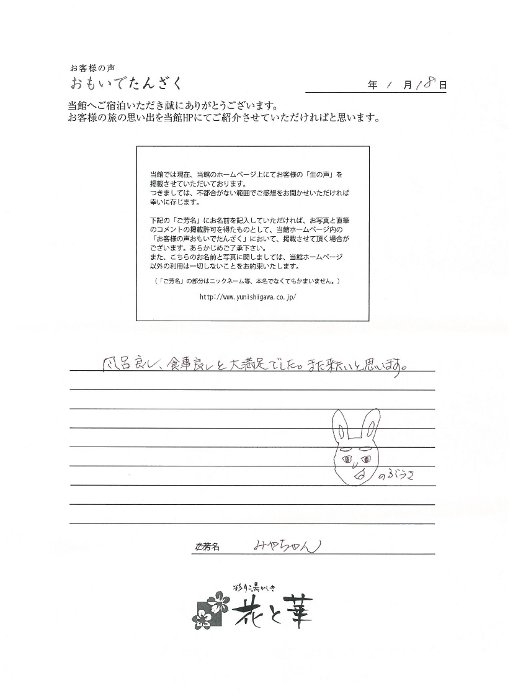 お客様の声
おもいでたんざく
年 1 月 18 日
当館へご宿泊いただき誠にありがとうございます。
お客様の旅の思い出を当館HPにてご紹介させていただければと思います。
当館では現在、当館のホームページ上にてお客様の「生の声」を
掲載させていただいております。
つきましては、不都合がない範囲でご感想をお聞かせいただければ
幸いに存じます。
下記の「ご芳名」にお名前を記入していただければ、お写真と直筆
のコメントの掲載許可を得たものとして、当館ホームページ内の
「お客様の声おもいでたんざく」において、掲載させて頂く場合が
ございます。あらかじめご了承下さい。
また、こちらのお名前と写真に関しましては、当館ホームページ
以外の利用は一切しないことをお約束いたします。
（「ご芳名」の部分はニックネーム等、本名でなくてもかまいません。）
http://www.yunishigawa.co.jp/
風呂良し、食事良しと大満足でした。また来たいと思います。
のぶうさ
ご芳名 みやちゃん
彩り湯かしき
花と華